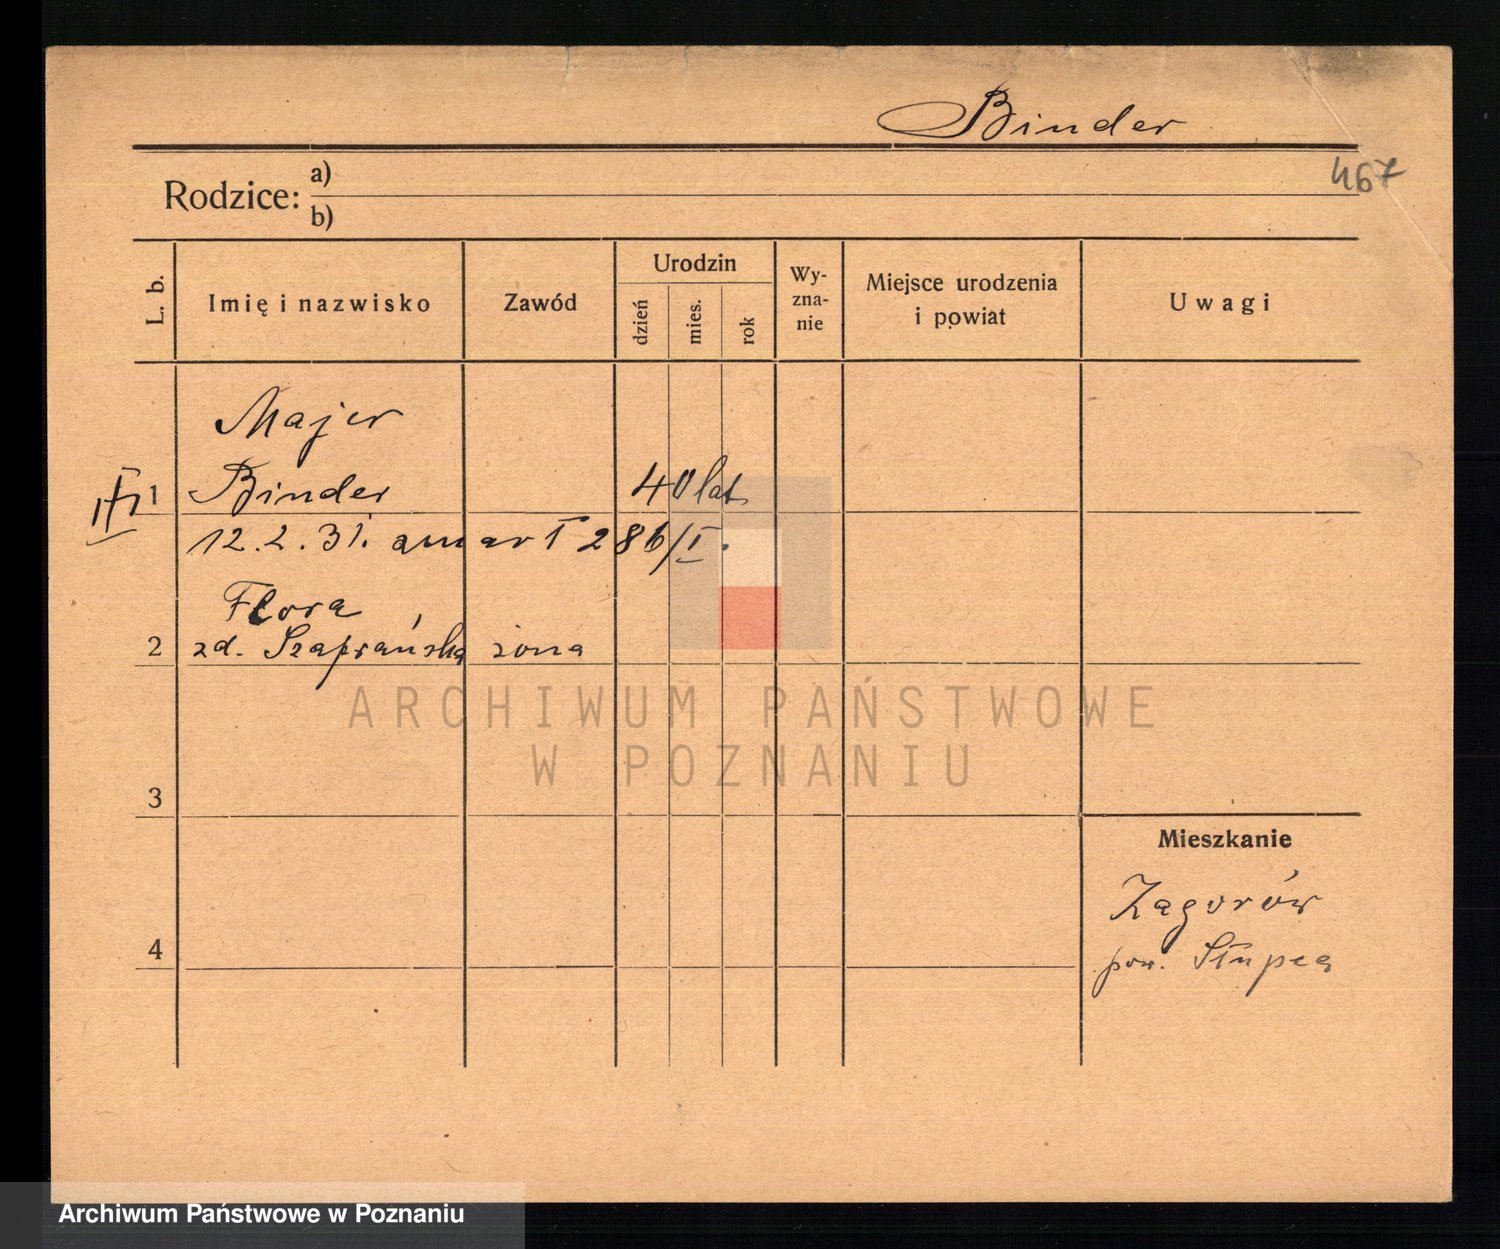 Binder
467
Rodzice: a)
b)
L. b.
Imię i nazwisko
Zawód
Urodzin
dzień
mies.
rok
Wy-
zna-
nie
Miejsce urodzenia
i powiat
Uwagi
Majer
1 Binder 40 lat
12.2.31. umarł 286/I.
Flora
2 zd. Szafrańska żona
3
4
Mieszkanie
Zagórów
pow. Słupca
ARCHIWUM PAŃSTWOWE
W POZNANIU
Archiwum Państwowe w Poznaniu